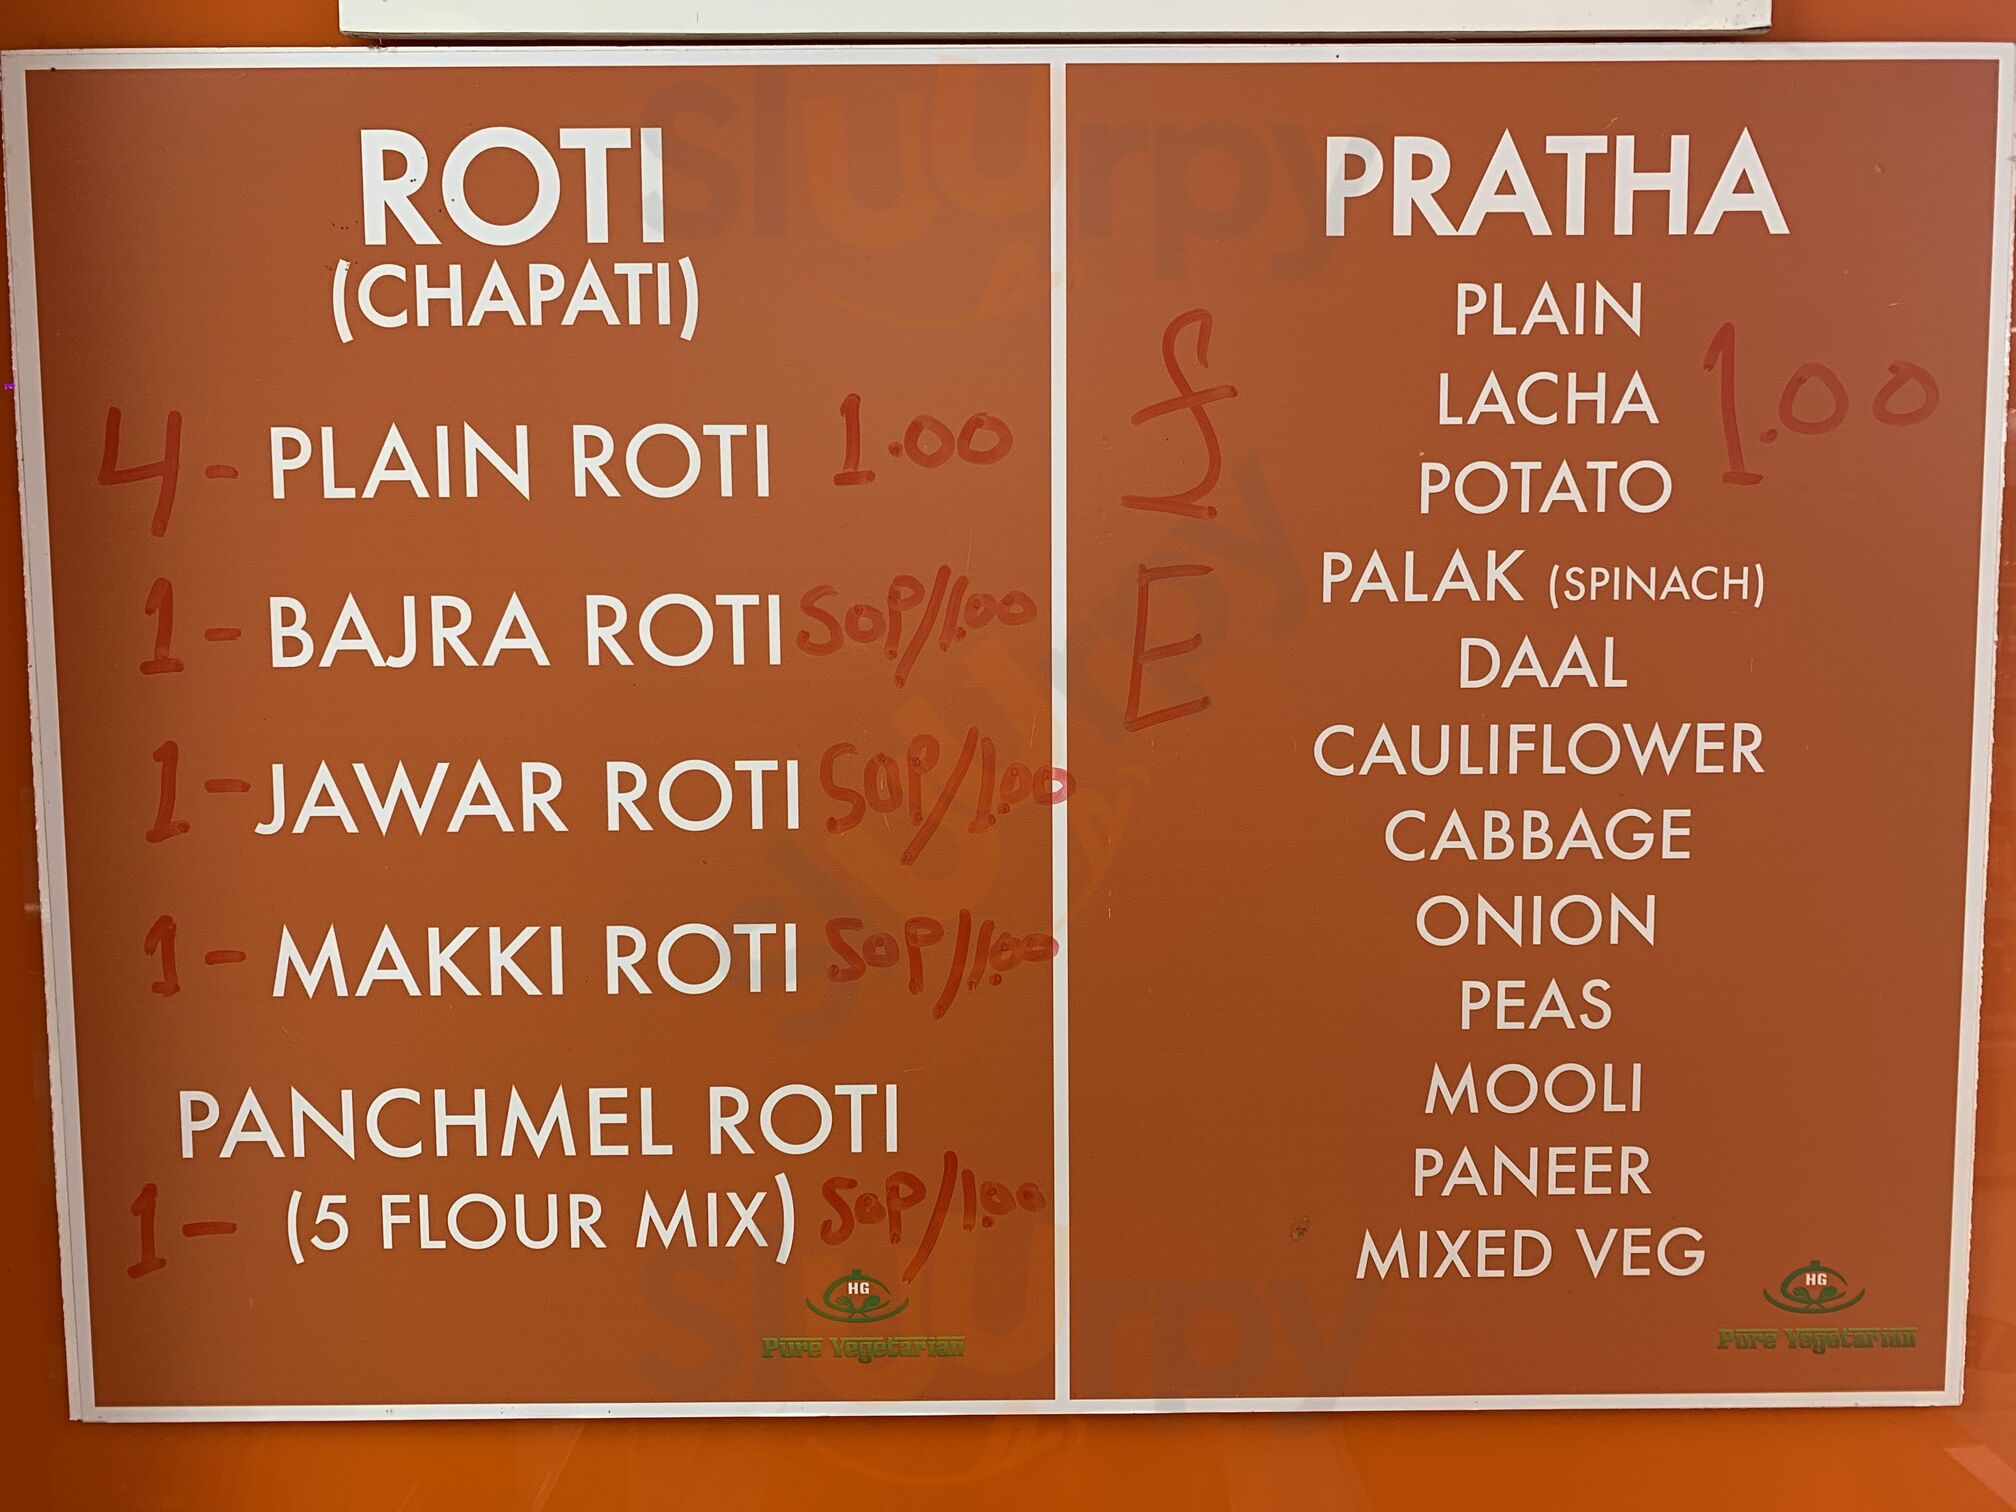 ROTI
(CHAPATI)
4 - PLAIN ROTI 1.00
1 - BAJRA ROTI 50P/1.00
1 - JAWAR ROTI 50P/1.00
1 - MAKKI ROTI 50P/1.00
PANCHMEL ROTI
1 - (5 FLOUR MIX) 50P/1.00
HG
Pure Vegetarian
PRATHA
PLAIN
£ LACHA 1.00
POTATO
PALAK (SPINACH)
E DAAL
CAULIFLOWER
CABBAGE
ONION
PEAS
MOOLI
PANEER
MIXED VEG
HG
Pure Vegetarian
sluurpy
sluurpy
sluurpy